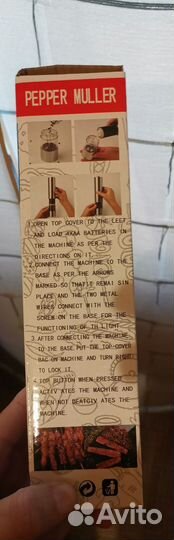 PEPPER MULLER
1.OPEN TOP COVER TO THE LEFT
AND LOAD 4XAA BATTERIES IN
THE MACHINE AS PER THE
DIRECTIONS ON IT.
2.CONNECT THE MACHINE TO THE
BASE AS PER THE ARROWS
MARKED SO THATIT REMAI SIN
PLACE AND THE TWO METAL
WIRES CONNECT WITH THE
SCREW ON THE BASE FOR THE
FUNCTIONING OF TH LIGHT.
3.AFTER CONNECTING THE MACHINE
TO THE BASE PUT THE TOP COVER
BAC ON MACHINE AND TURN RIGHT
TO LOCK IT.
4.TOP BUTTON WHEN PRESSED
ACTIV ATES THE MACHINE AND
WHEN NOT DEATGIV ATES THE
MACHINE.
Avito